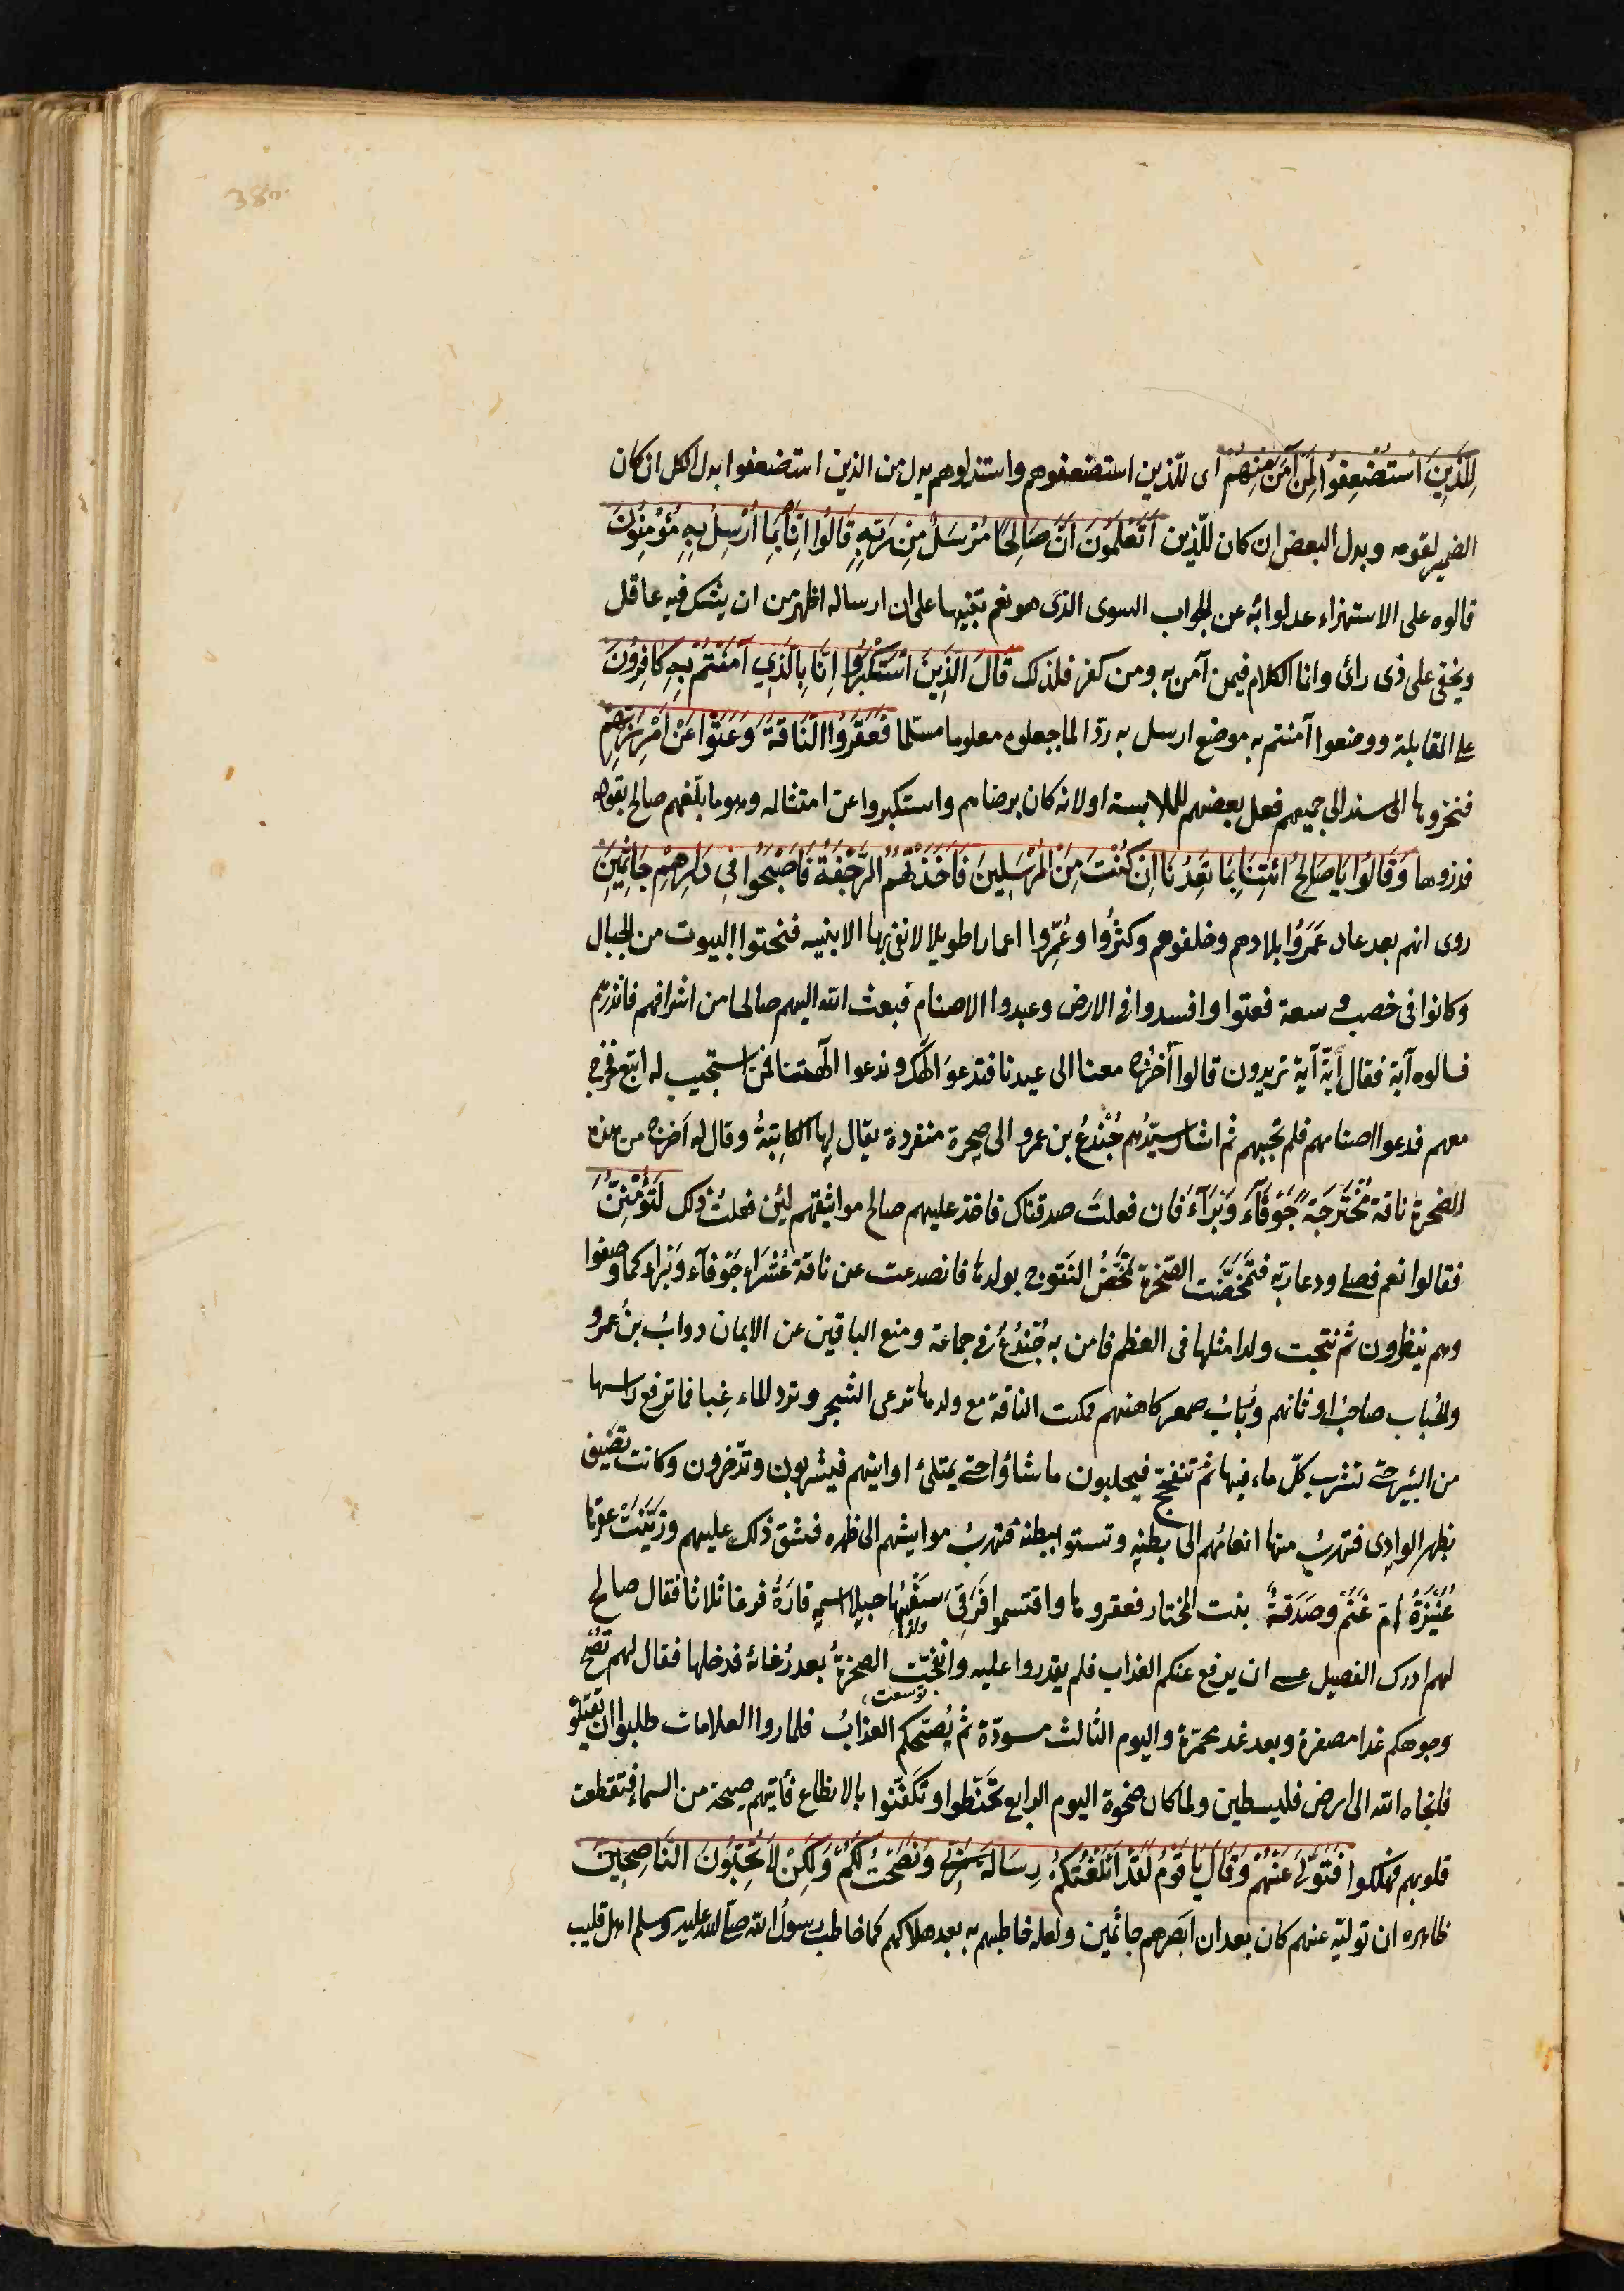 لِلَّذِينَ اسْتُضْعِفُوا لِمَنْ آمَنَ مِنْهُمْ اى للّذين استضعفوهم واستذلوهم بدل من الذين استضعفوا بدل الكل ان كان
الضمير لقومه وبدل البعض ان كان للّذين أَتَعْلَمُونَ أَنَّ صَالِحًا مُرْسَلٌ مِنْ رَبِّهِ قَالُوا إِنَّا بِمَا أُرْسِلَ بِهِ مُؤْمِنُونَ
قالوه على الاستهزاء عدلوا به عن الجواب السوى الذى هو نعم تنبيها على ان ارساله اظهر من ان يشك فيه عاقل
ويخفى على ذى رائ وانما الكلام فيمن آمن به ومن كفر فلذلك قَالَ الَّذِينَ اسْتَكْبَرُوا إِنَّا بِالَّذِي آمَنْتُمْ بِهِ كَافِرُونَ
على المقابلة ووضعوا آمنتم به موضع ارسل به ردّا لما جعلوه معلوما مسلما فَعَقَرُوا النَّاقَةَ وَعَتَوْا عَنْ أَمْرِ رَبِّهِمْ
فنحروها اسند الى جميعهم فعل بعضهم للملابسة او لانه كان برضاهم واستكبروا عن امتثاله وهو ما بلّغهم صالح بقوله
فذروها وَقَالُوا يَا صَالِحُ ائْتِنَا بِمَا تَعِدُنَا إِنْ كُنْتَ مِنَ الْمُرْسَلِينَ فَأَخَذَتْهُمُ الرَّجْفَةُ فَأَصْبَحُوا فِي دَارِهِمْ جَاثِمِينَ
روى انهم بعد عاد عَمَرُوا بلادهم وخلفوهم وكثرُوا وعُمِّروا اعمارا طويلا لا تفى بها الابنيه فنحتوا البيوت من الجبال
وكانوا فى خصب وسعة فعتوا وافسدوا فى الارض وعبدوا الاصنام فبعث الله اليهم صالحا من اشرافهم فانذرهم
فسالوه آية فقال أيّة آية تريدون قالوا أخرُج معنا الى عيدنا فتدعوَ الٓهك وندعوا الٓهتنا فمن استجيب له اتبع فخرج
معهم فدعوا اصنامهم فلم تجبهم ثم اشار سيّدُهم جُنْدُعُ بن عمرو الى صخرة منفردة يقال لها الكاثِبَةُ وقال له اَخرِج من هذه
الصخرة ناقة مُخْتَرَجَةً جَوْفَآءَ وَبْرَآءَ فان فعلتَ صدقناك فاخذ عليهم صالح مواثيقهم لئِن فعلتُ ذلك لَتُؤْمِنُنَّ
فقالوا نعم فصلى ودعا ربّه فتَمَخَّضَت الصّخرة تمخّضَ النَتوج بولدها فانصدعت عن ناقة عُشَرَاء جَوْفآء وَبْراء كما وصفوا
وهم ينظرون ثم نتجت ولدا مثلها فى العظم فامن به جُنْدُعٌ فى جماعة ومنع الباقين عن الايمان دوابُ بن عمرو
والحُباب صاحبُ اوثانهم وربابُ صمعر كاهنهم فمكث الناقة مع ولدها ترعى الشجر وترد الماء غِبا فما ترفع راسها
من البئر حتى تشرب كلّ ماء فيها ثم تتفحج فيحلبون ما شاؤا حتى يمتلئ اوانيهم فيشربون ويدّخرون وكانت تصيف
بظهر الوادى فتهربُ منها انعامُهم الى بطنه وتستوا ببطنه فتهربُ مواشيهم الى ظهره فشق ذلك عليهم وزَيَّنَتْ عقرها
عُنَيْزَةُ أمّ غَنَمٍ وصَدَقَةُ بنت المختار فعقروها واقتسموا فَرَقِىَ سقْبُها جبلا اسمه قارَةُ فرغا ثلاثا فقال صالح
ولدُها
لهم ادرك الفصيل عسى ان يرفع عنكم العذاب فلم يقدروا عليه وانفجّت الصخرةُ بعد رُغائه فدخلها فقال لهم تُصْبح
توسعت
وجوهكم غدا مصفرة وبعد غد محمّرة واليوم الثالث مسودّة ثم يُصبّحكم العذابُ فلما روا العلامات طلبوا ان يقتلوُ
فانجاه الله الى ارض فليسطين ولما كان ضحوة اليوم الرابع تحَنّطوا وتكفّنوا بالانطاع فأتيهم صيحة من السماء فتقطعت
قلوبهم فهلكوا فَتَوَلَّى عَنْهُمْ وَقَالَ يَا قَوْمِ لَقَدْ أَبْلَغْتُكُمْ رِسَالَةَ رَبِّي وَنَصَحْتُ لَكُمْ وَلَكِنْ لَا تُحِبُّونَ النَّاصِحِينَ
ظاهره ان توليّه عنهم كان بعد ان ابصرهم جاثمين ولعله خاطبهم به بعد هلاكهم كما خاطب رسولُ الله صلى الله عليه وسلم اهل قليب